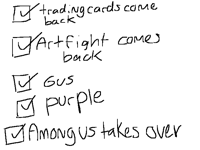 trading cards come
back
Artfight comes
back
Gus
purple
Among us takes over